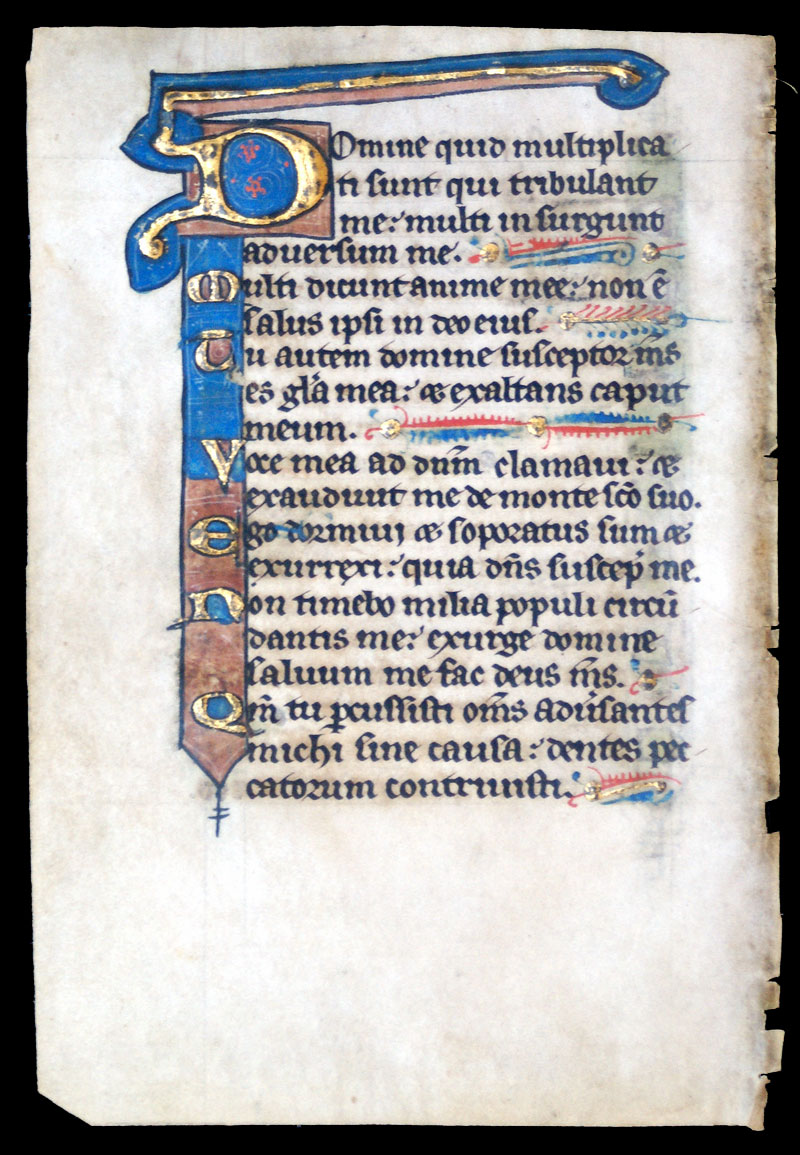 Domine quid multiplica
ti sunt qui tribulant
me: multi insurgunt
adversum me.
Multi dicunt anime mee: non ē
salus ipsi in deo eius.
Tu autem domine susceptor m̄s
es gl̄a mea: & exaltans caput
meum.
Voce mea ad dn̄m clamavi: &
exaudivit me de monte sc̄o suo.
Ego dormivi & soporatus sum &
exurrexi: quia dn̄s suscep̄ me.
Non timebo milia populi circū
dantis me: exurge domine
saluum me fac deus m̄s.
Qm̄ tu ꝑcussisti om̄s adv̄santes
michi sine causa: dentes pec
catorum contrivisti.